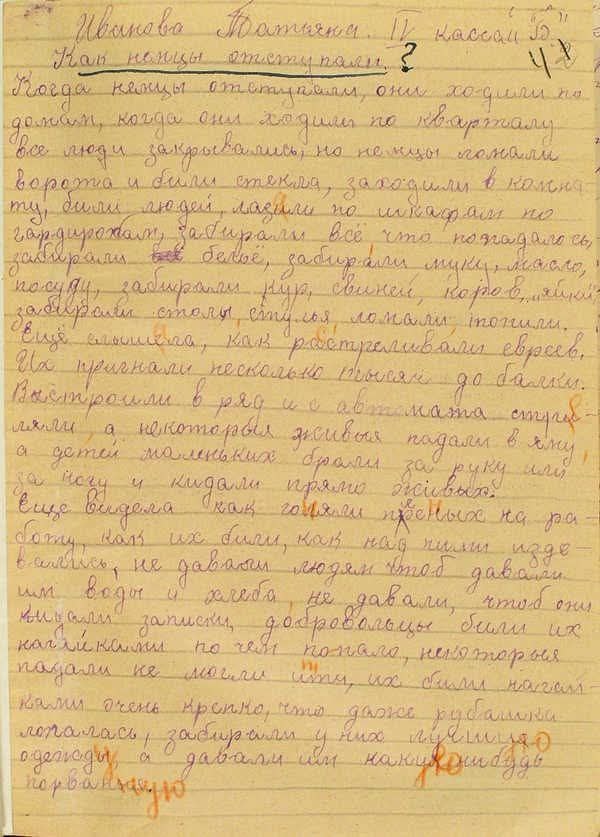 Иванова Татьяна. IV кассаи "Б"
Как немцы отступали. ?
Когда немцы отступали, они ходили по
домам, когда они ходили по кварталу
все люди закрывались, но немцы ломали
ворота и били стекла, заходили в комна-
ту, били людей, лазили по шкафам по
гардиробам, забирали всё что попадалось,
забирали бельё, забирали муку, масло,
посуду, забирали кур, свиней, коров, "яйки",
забирали столы, стулья ломали, топили.
Ещё слышала, как растреливали евреев.
Их пригнали несколько тысяч до балки.
Выстроили в ряд и с автомата стре-
ляли, а некоторыя живыя падали в яму,
а детей маленьких брали за руку или
за ногу и кидали прямо живых.
Еще видела как гоняли пленых на ра-
боту, как их били, как над ними изде-
вались, не даваши людям чтоб давали
им воды и хлеба, не давали, чтоб они
кидали записки, добровольцы били их
нагайками по чем попало, некоторыя
падали не могли ити, их били нагай-
ками очень крепко, что даже рубашки
лопалась, забирали у них лучшию
одежды, а давали им какую нибудь
порванную.